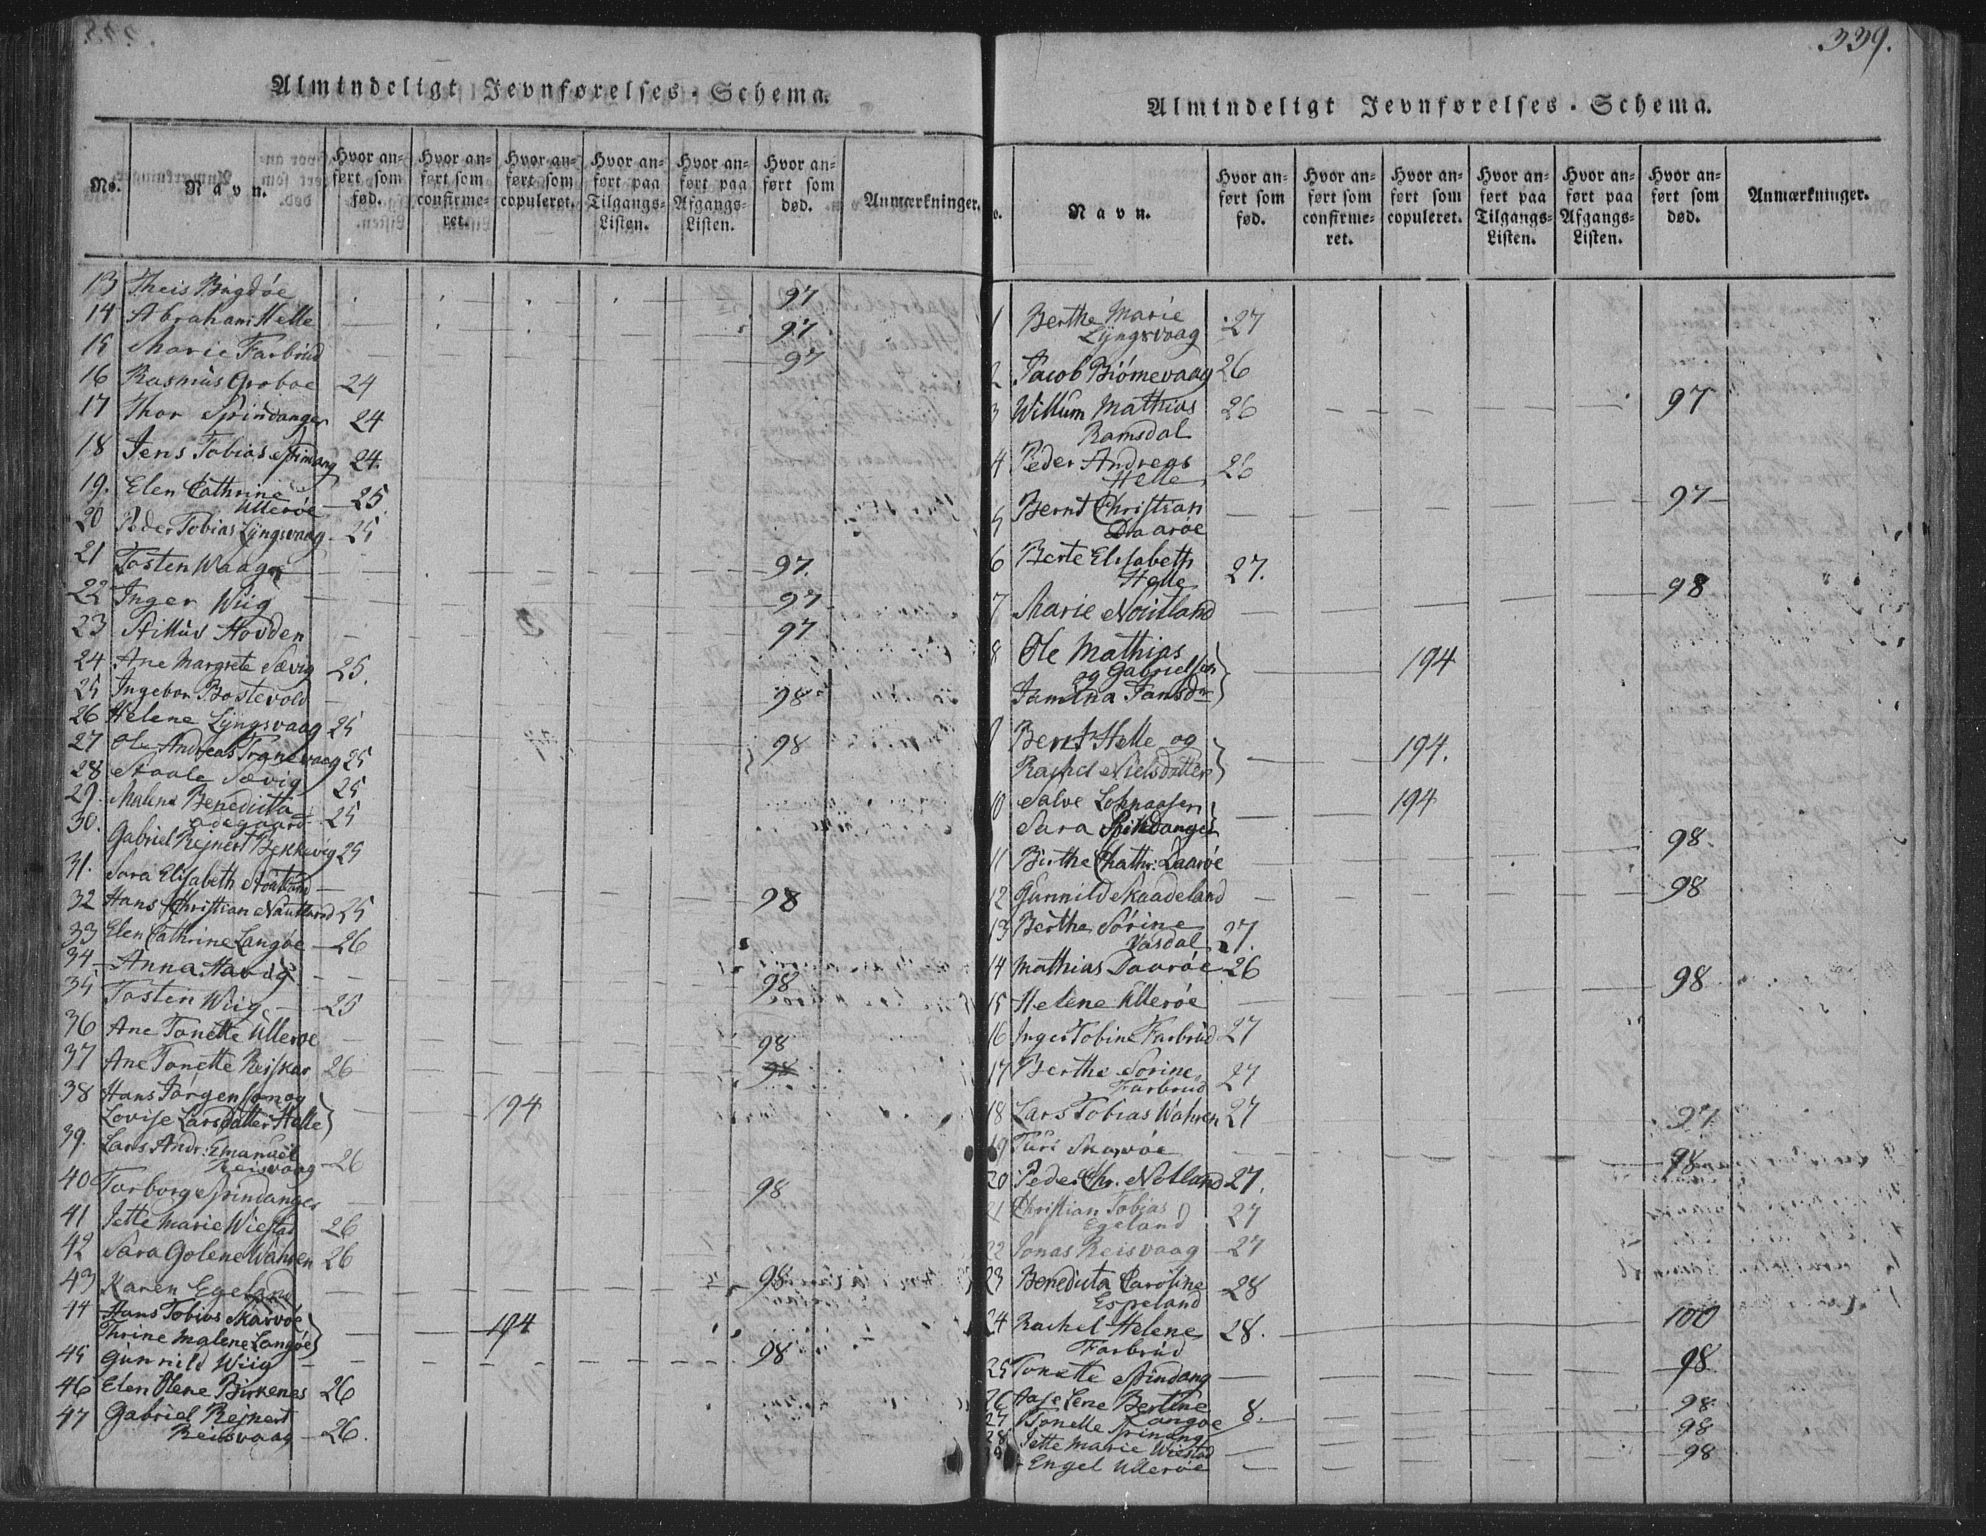 339.
Almindeligt Jevnførelses-Schema.
No.
Navn.
Hvor anført som fød.
Hvor anført som confirmeret.
Hvor anført som copuleret.
Hvor anført paa Tilgangs-Listen.
Hvor anført paa Afgangs-Listen.
Hvor anført som død.
Anmærkninger.
13 Theis Bugdöe 97
14 Abraham Helle 97
15 Marie Farbrúd 97
16 Rasmús Groboe 24
17 Thor Sprindanger 24
18 Jens Tobias Sprindang 24.
19. Elen Cathrine
Ulleröe 25.
20 Peder Tobias Lÿngsvaag 25
21 Tosten Waage 97.
22 Inger Wiig 97
23 Hovden 97
24 Ane Margrete Sævig 25.
25 Ingebor Bostevold 98
26 Helene Lÿngsvaag 25
27 Ole Andreas Tranevaag 25 98
28 Staale Sævig 25
29. Malene Benedicta
Ødegaard 25
30. Gabriel Rejnert Bekkevig 25
31. Sara Elisabeth
32 Hans Christian Nautland 25 98
33 Elen Cathrine Langöe 26
34 Anna Havig
35 Tosten Wiig 25 98
36 Ane Tonette Ulleröe 98
37 Ane Tonette 26 98
38 Hans Jörgensön og
Lovise Larsdatter Helle 194
39. Lars Andr: Emanuel
Reisvaag 26
40 Torborg Sprindanger 98
41 Jette Marie Wiestad 26
42 Sara Golene Wahren 26
43 Karen Egeland 98
44 Hans Tobias Skarvöe
Thrine Malene Langöe 194
45 Gúnnild Wiig 98
46 Elen Olene Birkenes 26
47 Gabriel Rejnert
Reisvaag 26.
Almindeligt Jevnførelses-Schema.
o.
Navn.
Hvor anført som fød.
Hvor anført som confirmeret.
Hvor anført som copuleret.
Hvor anført paa Tilgangs-Listen.
Hvor anført paa Afgangs-Listen.
Hvor anført som død.
Anmærkninger.
1 Berthe Marie
Lÿngsvaag 27
2 Jacob Biörnevaag 26
3 Willum Mathias
Ramsdal 26 97
4 Peder Andreas
Helle 26
5 Bernt Christian
Daaröe 97
6 Berte Elisabeth
Helle 27.
7 Marie Noutland 98
8 Ole Mathias
og Gabrielsen
Jansdr 194
9 Bernt Helle og
Rachel Nielsdatter 194.
10 Salve
Sara Sprindanger 194
11 Birthe Chathr: Daaröe 98.
12 Gunnild Skaadeland 98
13 Berthe Sörine
Vasdal 27.
14 Mathias Daaröe 26
15 Helene Ulleröe 98
16 Inger Tobine Farbrúd 27
17 Berthe Sorine
Farbrúd 27
18 Lars Tobias Wahren 27
19 Turi Skarvöe 97
20 Peder Chr. Notland 27. 98
21 Christian Tobias
Egeland 27
22 Jonas Reisvaag 27
23 Benedicta Caroline
Espeland 28
24 Rachel Helene
Farbrúd 28. 100
25 Tonette Sprindang 98
26 Aase Lene Bertine
Langöe 8. 98
27 Tonette Sprinang 98
28 Jette Marie Wiestad 98
Engel Ulleröe